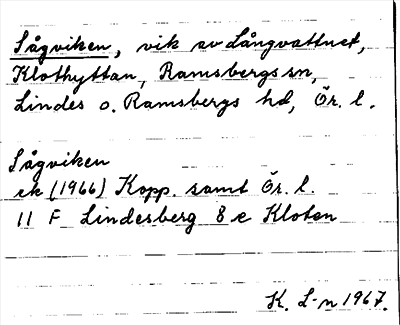 Sågviken, vik av Långvattnet,
Klothyttan, Ramsbergs sn,
Lindes o. Ramsbergs hd, Ör. l.
Sågviken
ek (1966) Kopp. samt Ör. l.
11 F Lindesberg 8 e Kloten
K. L-n 1967.